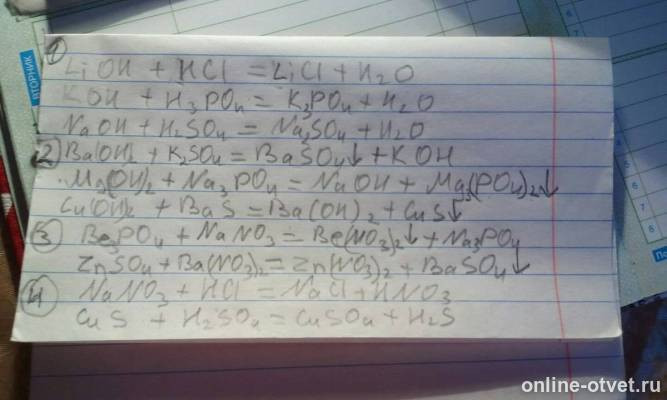 ВТОРНИК
1
LiOH + HCl = LiCl + H2O
KOH + H3PO4 = K3PO4 + H2O
NaOH + H2SO4 = Na2SO4 + H2O
2 Ba(OH)2 + K2SO4 = BaSO4↓ + KOH
Mg(OH)2 + Na3PO4 = NaOH + Mg3(PO4)2↓
Cu(OH)2 + BaS = Ba(OH)2 + CuS↓
3 Be3PO4 + NaNO3 = Be(NO3)2↓ + Na3PO4
ZnSO4 + Ba(NO3)2 = Zn(NO3)2 + BaSO4↓
4 NaNO3 + HCl = NaCl + HNO3
CuS + H2SO4 = CuSO4 + H2S
online-otvet.ru